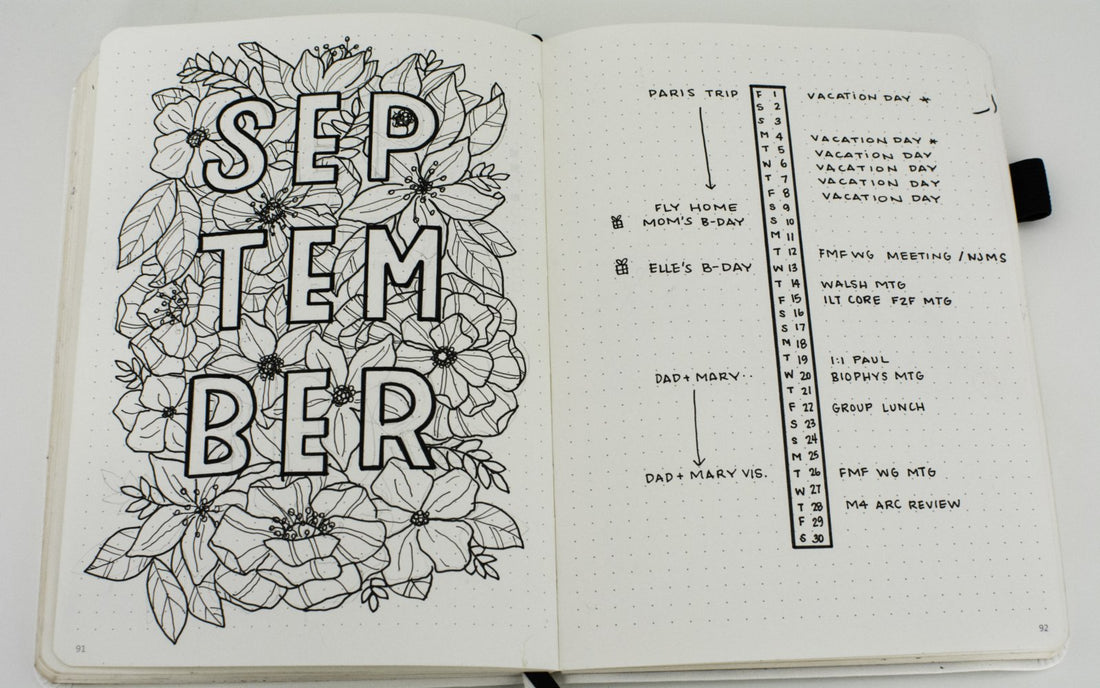 SEP
TEM
BER
91
PARIS TRIP F 1 VACATION DAY *
S 2
S 3
M 4 VACATION DAY *
T 5 VACATION DAY
W 6 VACATION DAY
T 7 VACATION DAY
F 8 VACATION DAY
FLY HOME S 9
MOM'S B-DAY S 10
M 11
T 12 FMF WG MEETING / NJMS
ELLE'S B-DAY W 13
T 14 WALSH MTG
F 15 ILT CORE F2F MTG
S 16
S 17
M 18
T 19 1:1 PAUL
DAD + MARY.. W 20 BIOPHYS MTG
T 21
F 22 GROUP LUNCH
S 23
S 24
M 25
DAD + MARY VIS. T 26 FMF WG MTG
W 27
T 28 M4 ARC REVIEW
F 29
S 30
92